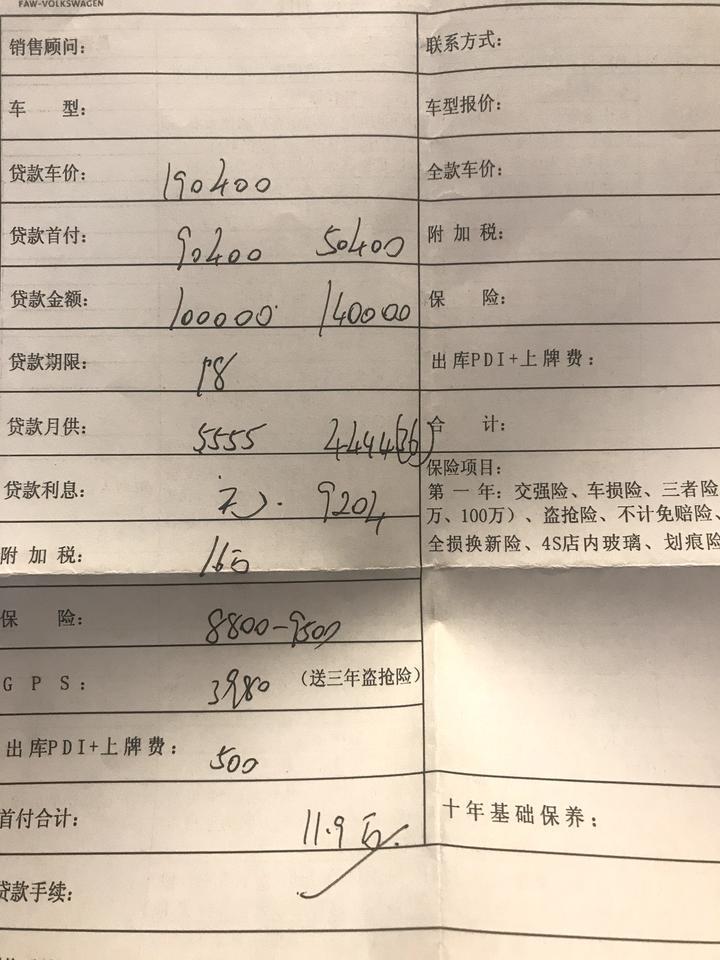 FAW-VOLKSWAGEN
销售顾问： 联系方式：
车 型： 车型报价：
贷款车价： 190400 全款车价：
贷款首付： 90400 50400 附 加 税：
贷款金额： 100000 140000 保 险：
贷款期限： 18 出库PDI+上牌费：
贷款月供： 5555 4444(36) 合 计：
贷款利息： 无. 9204
保险项目：
第 一 年：交强险、车损险、三者险
万、100万）、盗抢险、不计免赔险、
全损换新险、4S店内玻璃、划痕险
附 加 税： 1.6万
保 险： 8800-9500
G P S： 3980 （送三年盗抢险）
出库PDI+上牌费： 500
首付合计： 11.9万. 十年基础保养：
贷款手续：